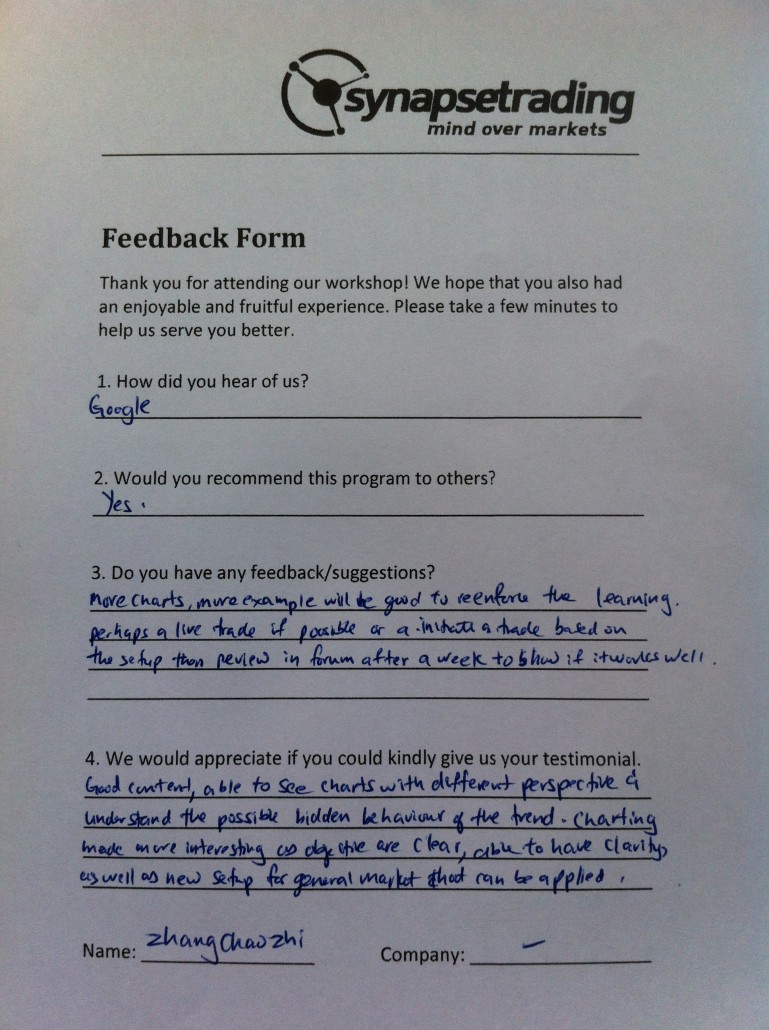 synapsetrading
mind over markets
Feedback Form
Thank you for attending our workshop! We hope that you also had
an enjoyable and fruitful experience. Please take a few minutes to
help us serve you better.
1. How did you hear of us?
Google
2. Would you recommend this program to others?
Yes.
3. Do you have any feedback/suggestions?
More charts, more example will be good to reenforce the learning.
perhaps a live trade if possible or a initiate a trade based on
the setup then review in forum after a week to show if it works well.
4. We would appreciate if you could kindly give us your testimonial.
Good content, able to see charts with different perspective &
understand the possible hidden behaviour of the trend. Charting
made more interesting as objective are clear, able to have clarity,
as well as new setup for general market that can be applied.
Name: Zhang Chao Zhi Company: –